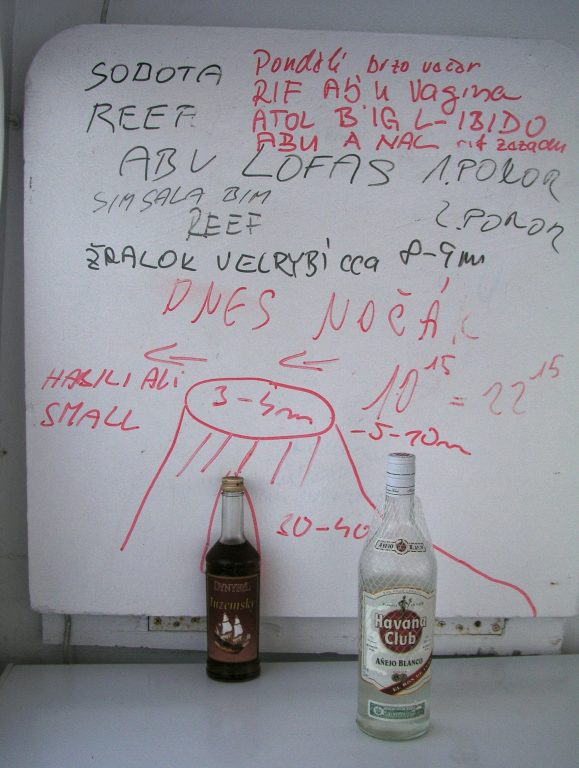 SOBOTA
Pondělí brzo večer
RIF Abu Vagina
REEF
ATOL BIG L-IBIDO
ABU A NAL rif zozadu
ABU LOFAS 1.PONOR
SIMSALA BIM
REEF
2.PONOR
ŽRALOK VELRYBÍ cca 8-9m
DNES NOČÁK
HABILI ALI
SMALL
3-4m
10 15 = 22 15
-5-10m
30-40
DYNYBYL
Tuzemský
AÑEJO BLANCO
Havana
Club
AÑEJO BLANCO